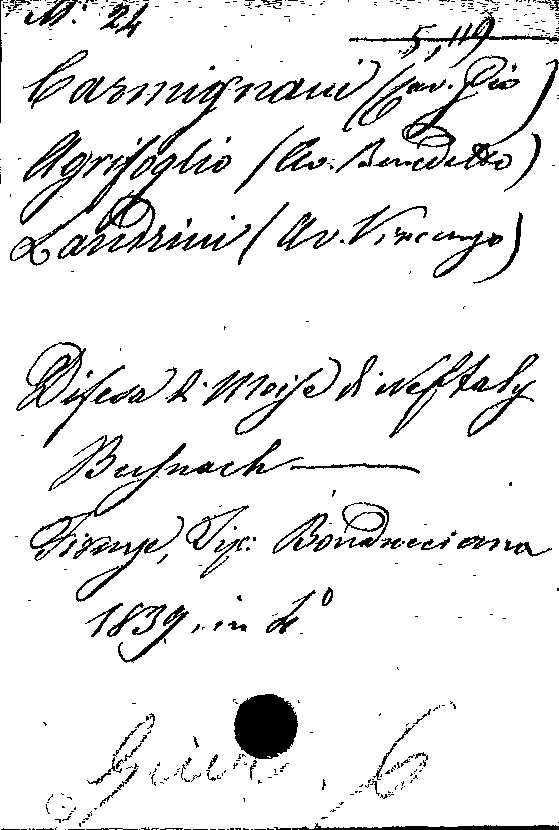 N.° 24
5,119
Carmignani (Cav. Gio
Agrifoglio (Av. Benedetto)
Landrini (Av. Vincenzo)
Difesa di Moise di Neftaly
Busnach
Firenze, Tip: Bonducciana
1839, in 4°
Giur. 6